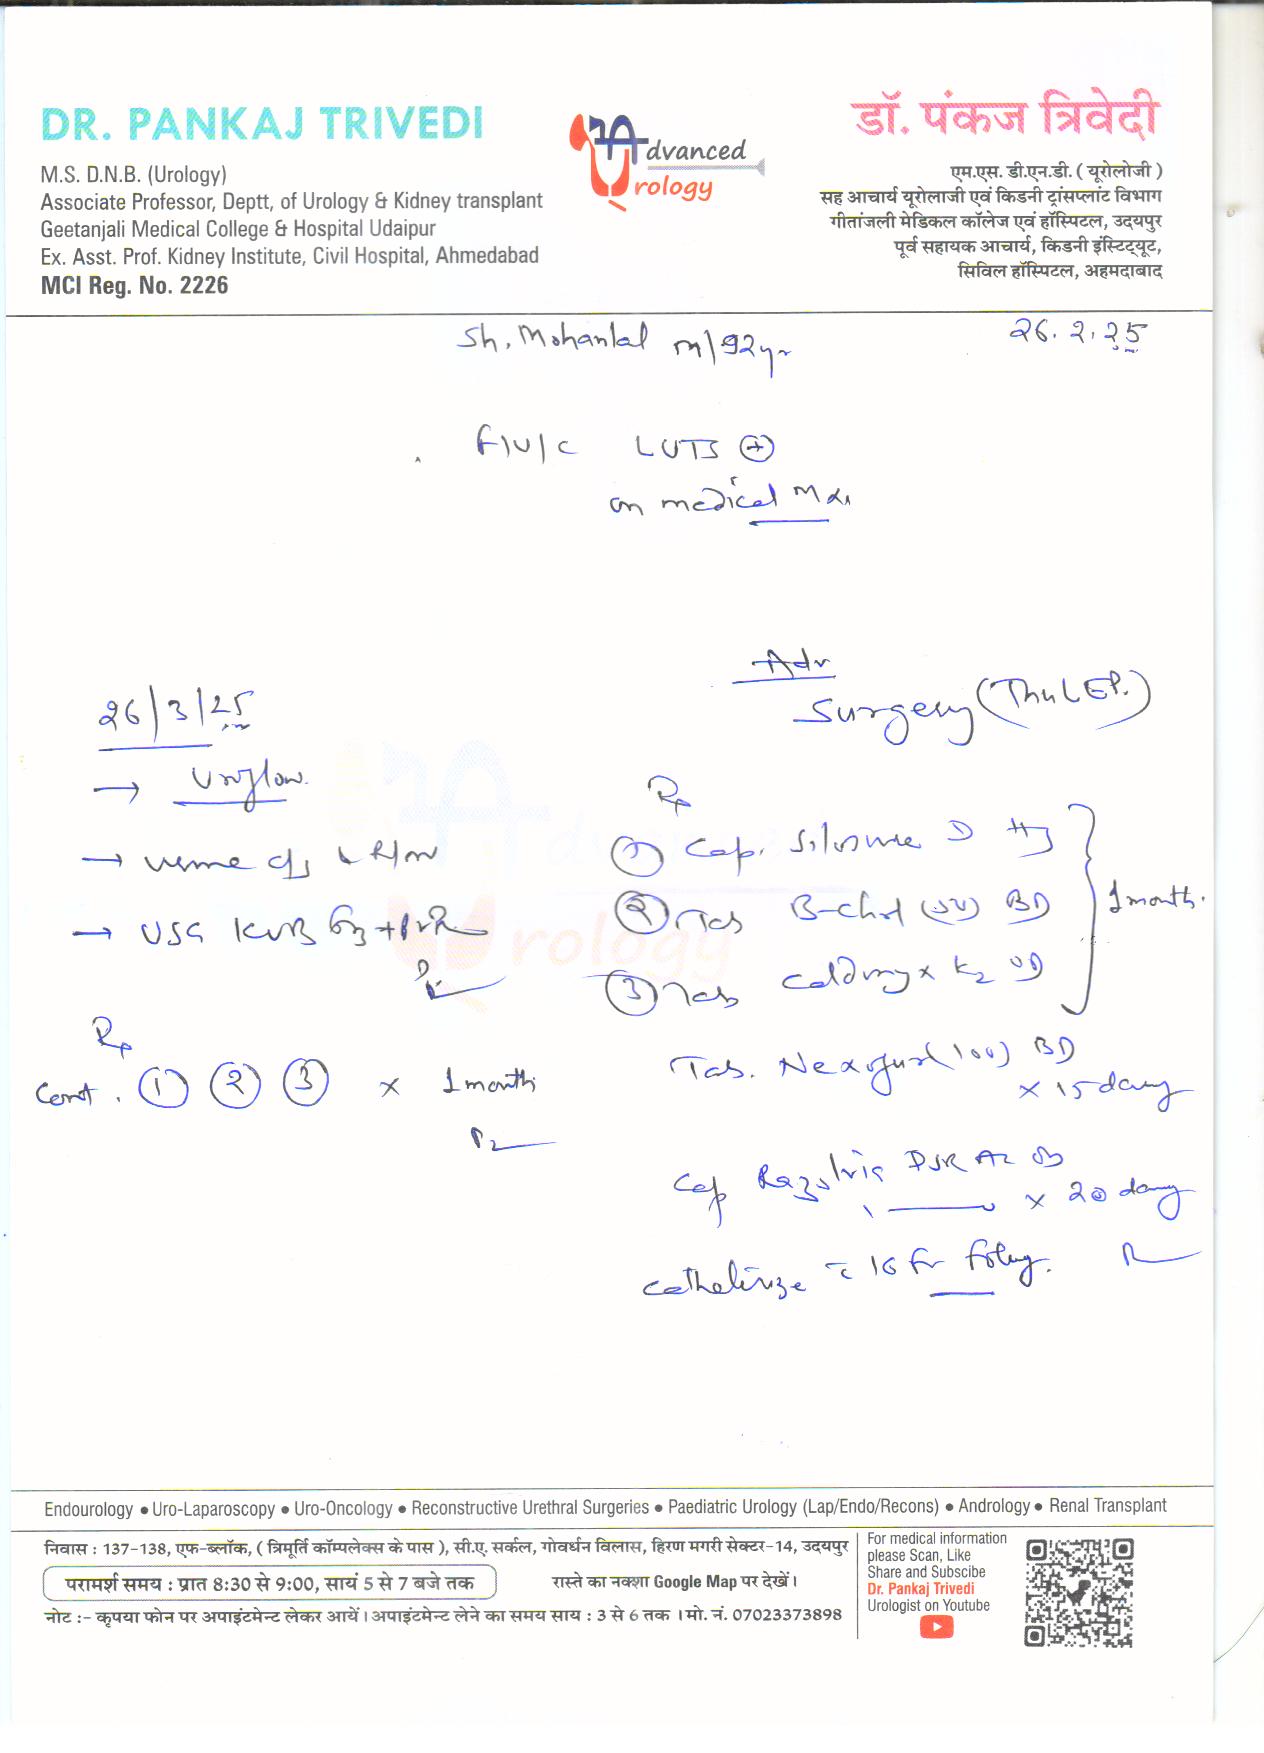 DR. PANKAJ TRIVEDI
M.S. D.N.B. (Urology)
Associate Professor, Deptt, of Urology & Kidney transplant
Geetanjali Medical College & Hospital Udaipur
Ex. Asst. Prof. Kidney Institute, Civil Hospital, Ahmedabad
MCI Reg. No. 2226
Advanced
Urology
डॉ. पंकज त्रिवेदी
एम.एस. डी.एन.डी. ( यूरोलोजी )
सह आचार्य यूरोलाजी एवं किडनी ट्रांसप्लांट विभाग
गीतांजली मेडिकल कॉलेज एवं हॉस्पिटल, उदयपुर
पूर्व सहायक आचार्य, किडनी इंस्टिट्यूट,
सिविल हॉस्पिटल, अहमदाबाद
Sh. Mohanlal m/92yr
26.2.25
F/U/C LUTS +
on medical
Adv
Surgery (ThuLEP.)
Rp
① Cap. D
② Tab BD
③ Tab K2 OD
1 month.
Tab. (100) BD
x 15 days
Cap DSR
x 20 days
catheterize c̄ 16 Fr Foley.
26/3/25
→ Uroflow.
→ urine c/s R/m
→ USG KUB + PVR
Rp
Cont. ① ② ③ x 1 month
Endourology • Uro-Laparoscopy • Uro-Oncology • Reconstructive Urethral Surgeries • Paediatric Urology (Lap/Endo/Recons) • Andrology • Renal Transplant
निवास : 137-138, एफ-ब्लॉक, ( त्रिमूर्ति कॉम्पलेक्स के पास ), सी.ए. सर्कल, गोवर्धन विलास, हिरण मगरी सेक्टर-14, उदयपुर
परामर्श समय : प्रात 8:30 से 9:00, सायं 5 से 7 बजे तक
रास्ते का नक्शा Google Map पर देखें ।
नोट :- कृपया फोन पर अपाइंटमेन्ट लेकर आयें । अपाइंटमेन्ट लेने का समय साय : 3 से 6 तक । मो. नं. 07023373898
For medical information
please Scan, Like
Share and Subscibe
Dr. Pankaj Trivedi
Urologist on Youtube